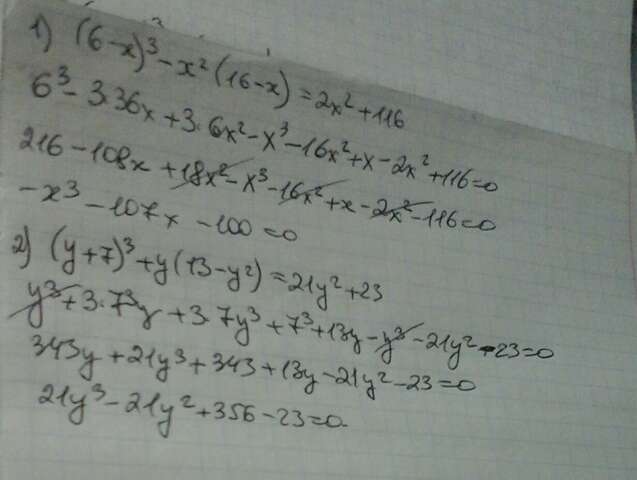 1) (6-x)³-x²(16-x)=2x²+116
6³-3·36x+3·6x²-x³-16x²+x-2x²+116=0
216-108x+18x²-x³-16x²+x-2x²-116=0
-x³-107x-100=0
2) (y+7)³+y(13-y²)=21y²+23
y³+3·7³y+3·7y³+7³+13y-y³-21y²-23=0
343y+21y³+343+13y-21y²-23=0
21y³-21y²+356-23=0.